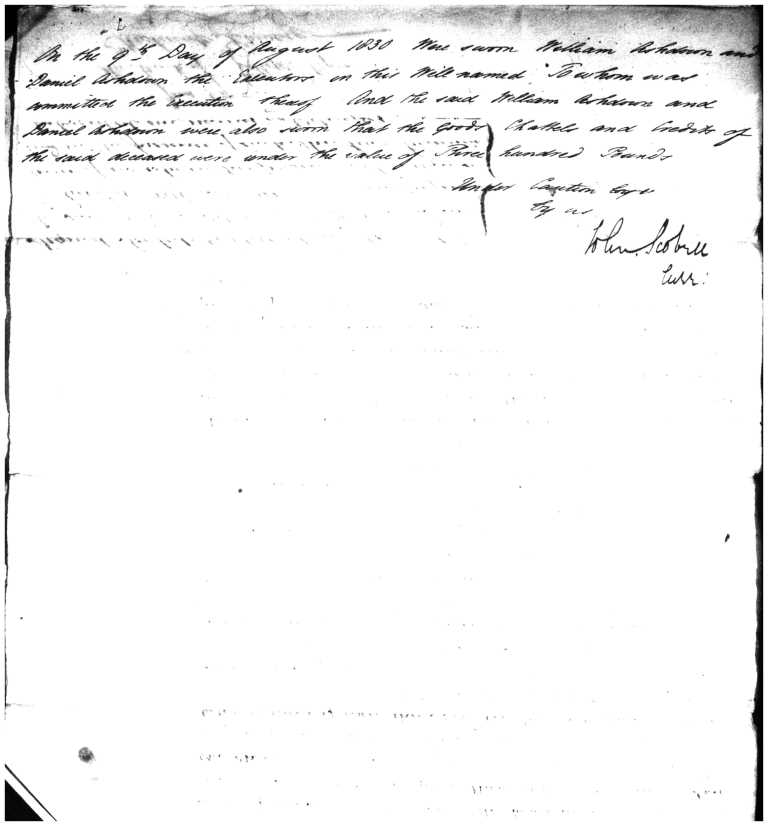 On the 9th Day of August 1830 Were sworn William Ashdown and
Daniel Ashdown the Executors in this Will named To whom was
committed the Execution thereof And the said William Ashdown and
Daniel Ashdown were also sworn that the Goods Chattels and Credits of
the said deceased were under the value of Three hundred Pounds
Under Caution
by us
John Scobell
Surr: